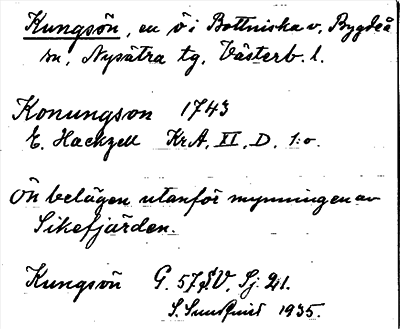 Kungsön, en ö i Bottniska v, Bygdeå
sn, Nysätra tg, Västerb. l.
Konungson 1743
E. Hackzell KrA, XI, D, 1:o.
Ön belägen utanför mynningen av
Sikefjärden.
Kungsön G. 57 SV. Sj. 21.
S. Sundquist 1935.